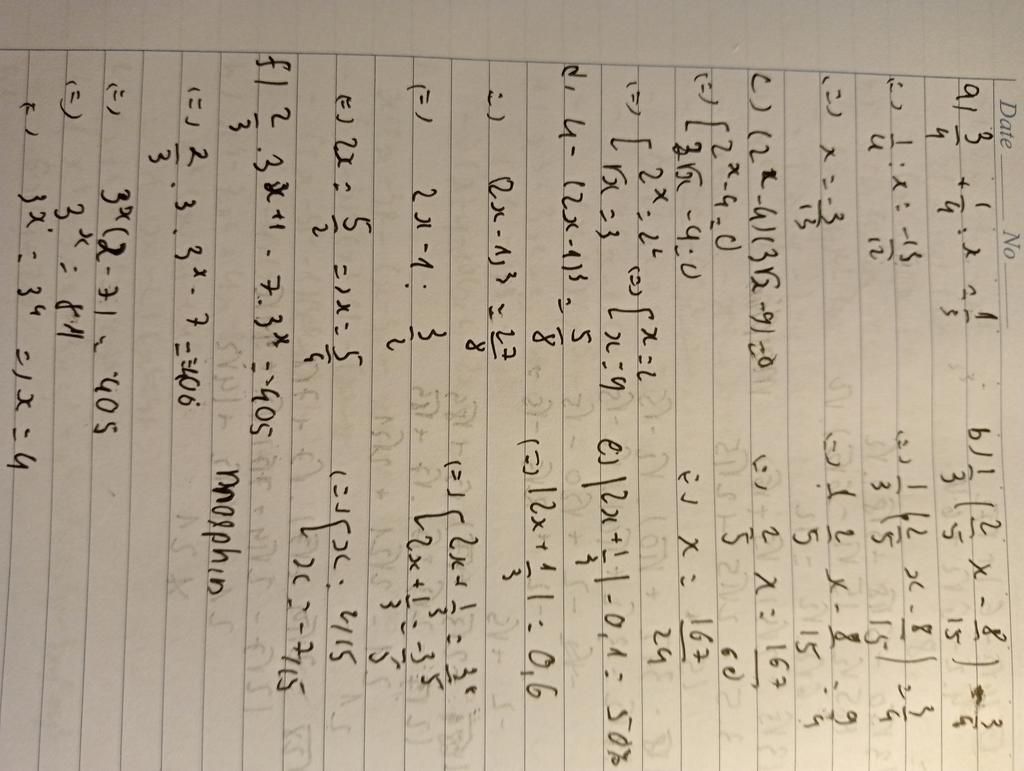 Date No
a) 3/4 + 1/4 : x = 1/3
(=) 1/4 : x = -15/12
(=) x = -3/13
c) (2^x - 4)(3√x - 9) = 0
(=) [ 2^x - 4 = 0
[ 3√x - 9 = 0
(=) [ 2^x = 2^2 (=) [ x = 2
[ √x = 3 [ x = 9
d, 4 - (2x - 1)^3 = 5/8
(=) (2x - 1)^3 = 27/8
(=) 2x - 1 = 3/2
(=) 2x = 5/2 => x = 5/4
f) 2/3 . 3^x+1 - 7.3^x = -405
(=) 2/3 . 3 . 3^x - 7 = -405
(=) 3^x (2 - 7) = -405
(=) 3^x = 81
(=) 3^x = 3^4 => x = 4
b) 1/3 (2/5 x - 8/15) = 3/4
(=) 1/3 (2/5 x - 8/15) = 3/4
(=) 2/5 x - 8/15 = 9/4
(=) 2/5 x = 167/60
(=) x = 167/24
e) |2x + 1/3| - 0,1 = 50%
(=) |2x + 1/3| = 0,6
(=) [ 2x + 1/3 = 3/5
[ 2x + 1/3 = -3/5
(=) [ x = 4/15
[ x = -7/15
mnophin